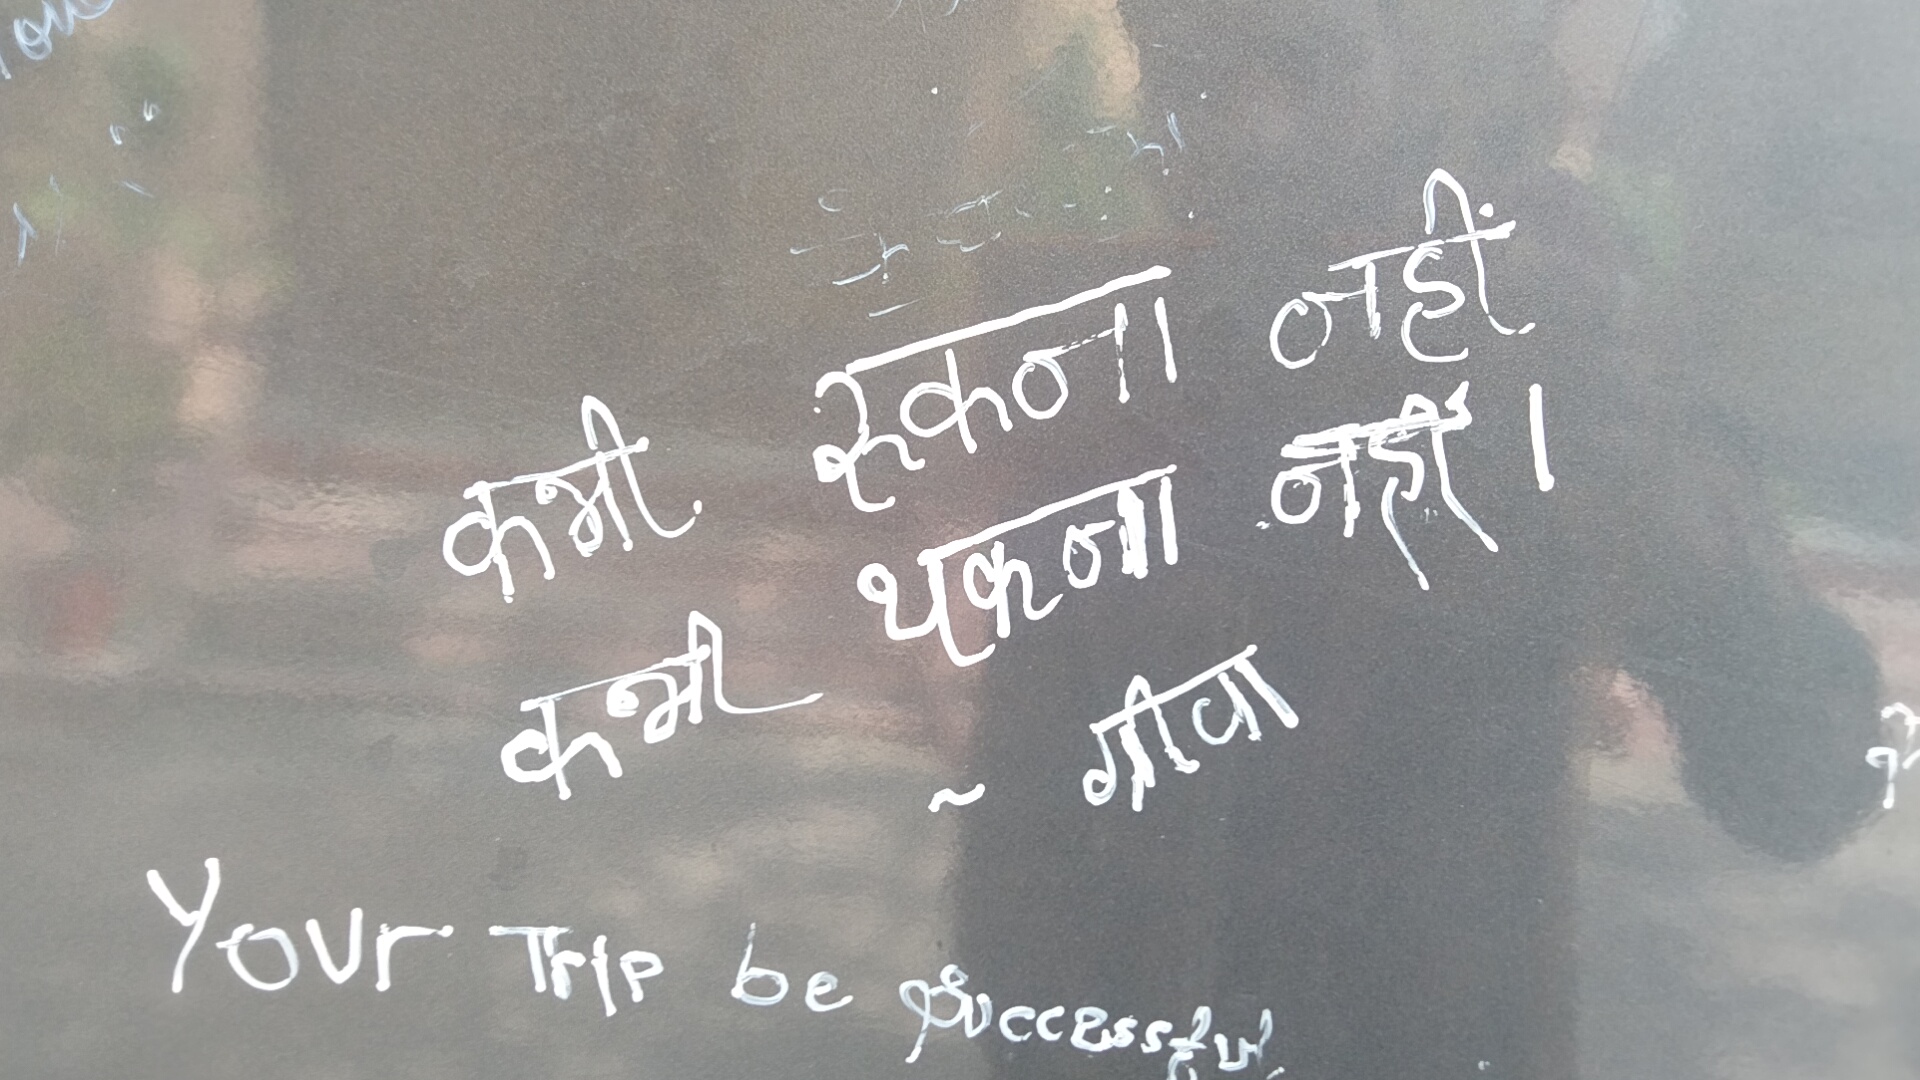 कभी रूकना नहीं
कभी थकना नहीं ।
~ गीवा
Your Trip be Successful